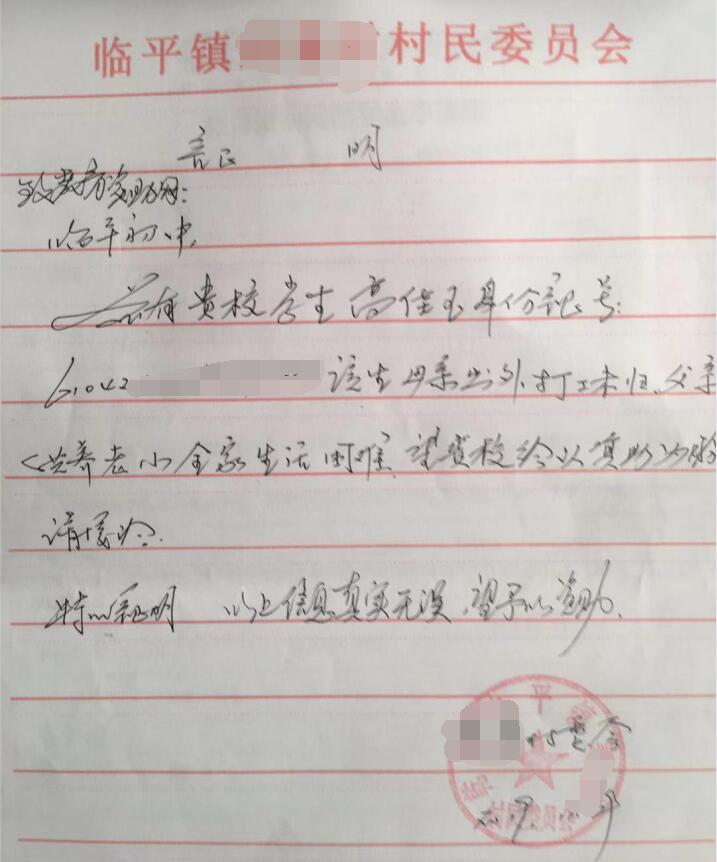 临平镇 村民委员会
证 明
致教育资助网：
临平初中，
兹有贵校学生高佳玉身份证号：
61042 该生母亲出外打工未归，父亲
供养老小全家生活困难，望贵校给以资助为盼
请接洽.
特以证明 以上信息真实无误，望予以资助.
村委会
村民委员会